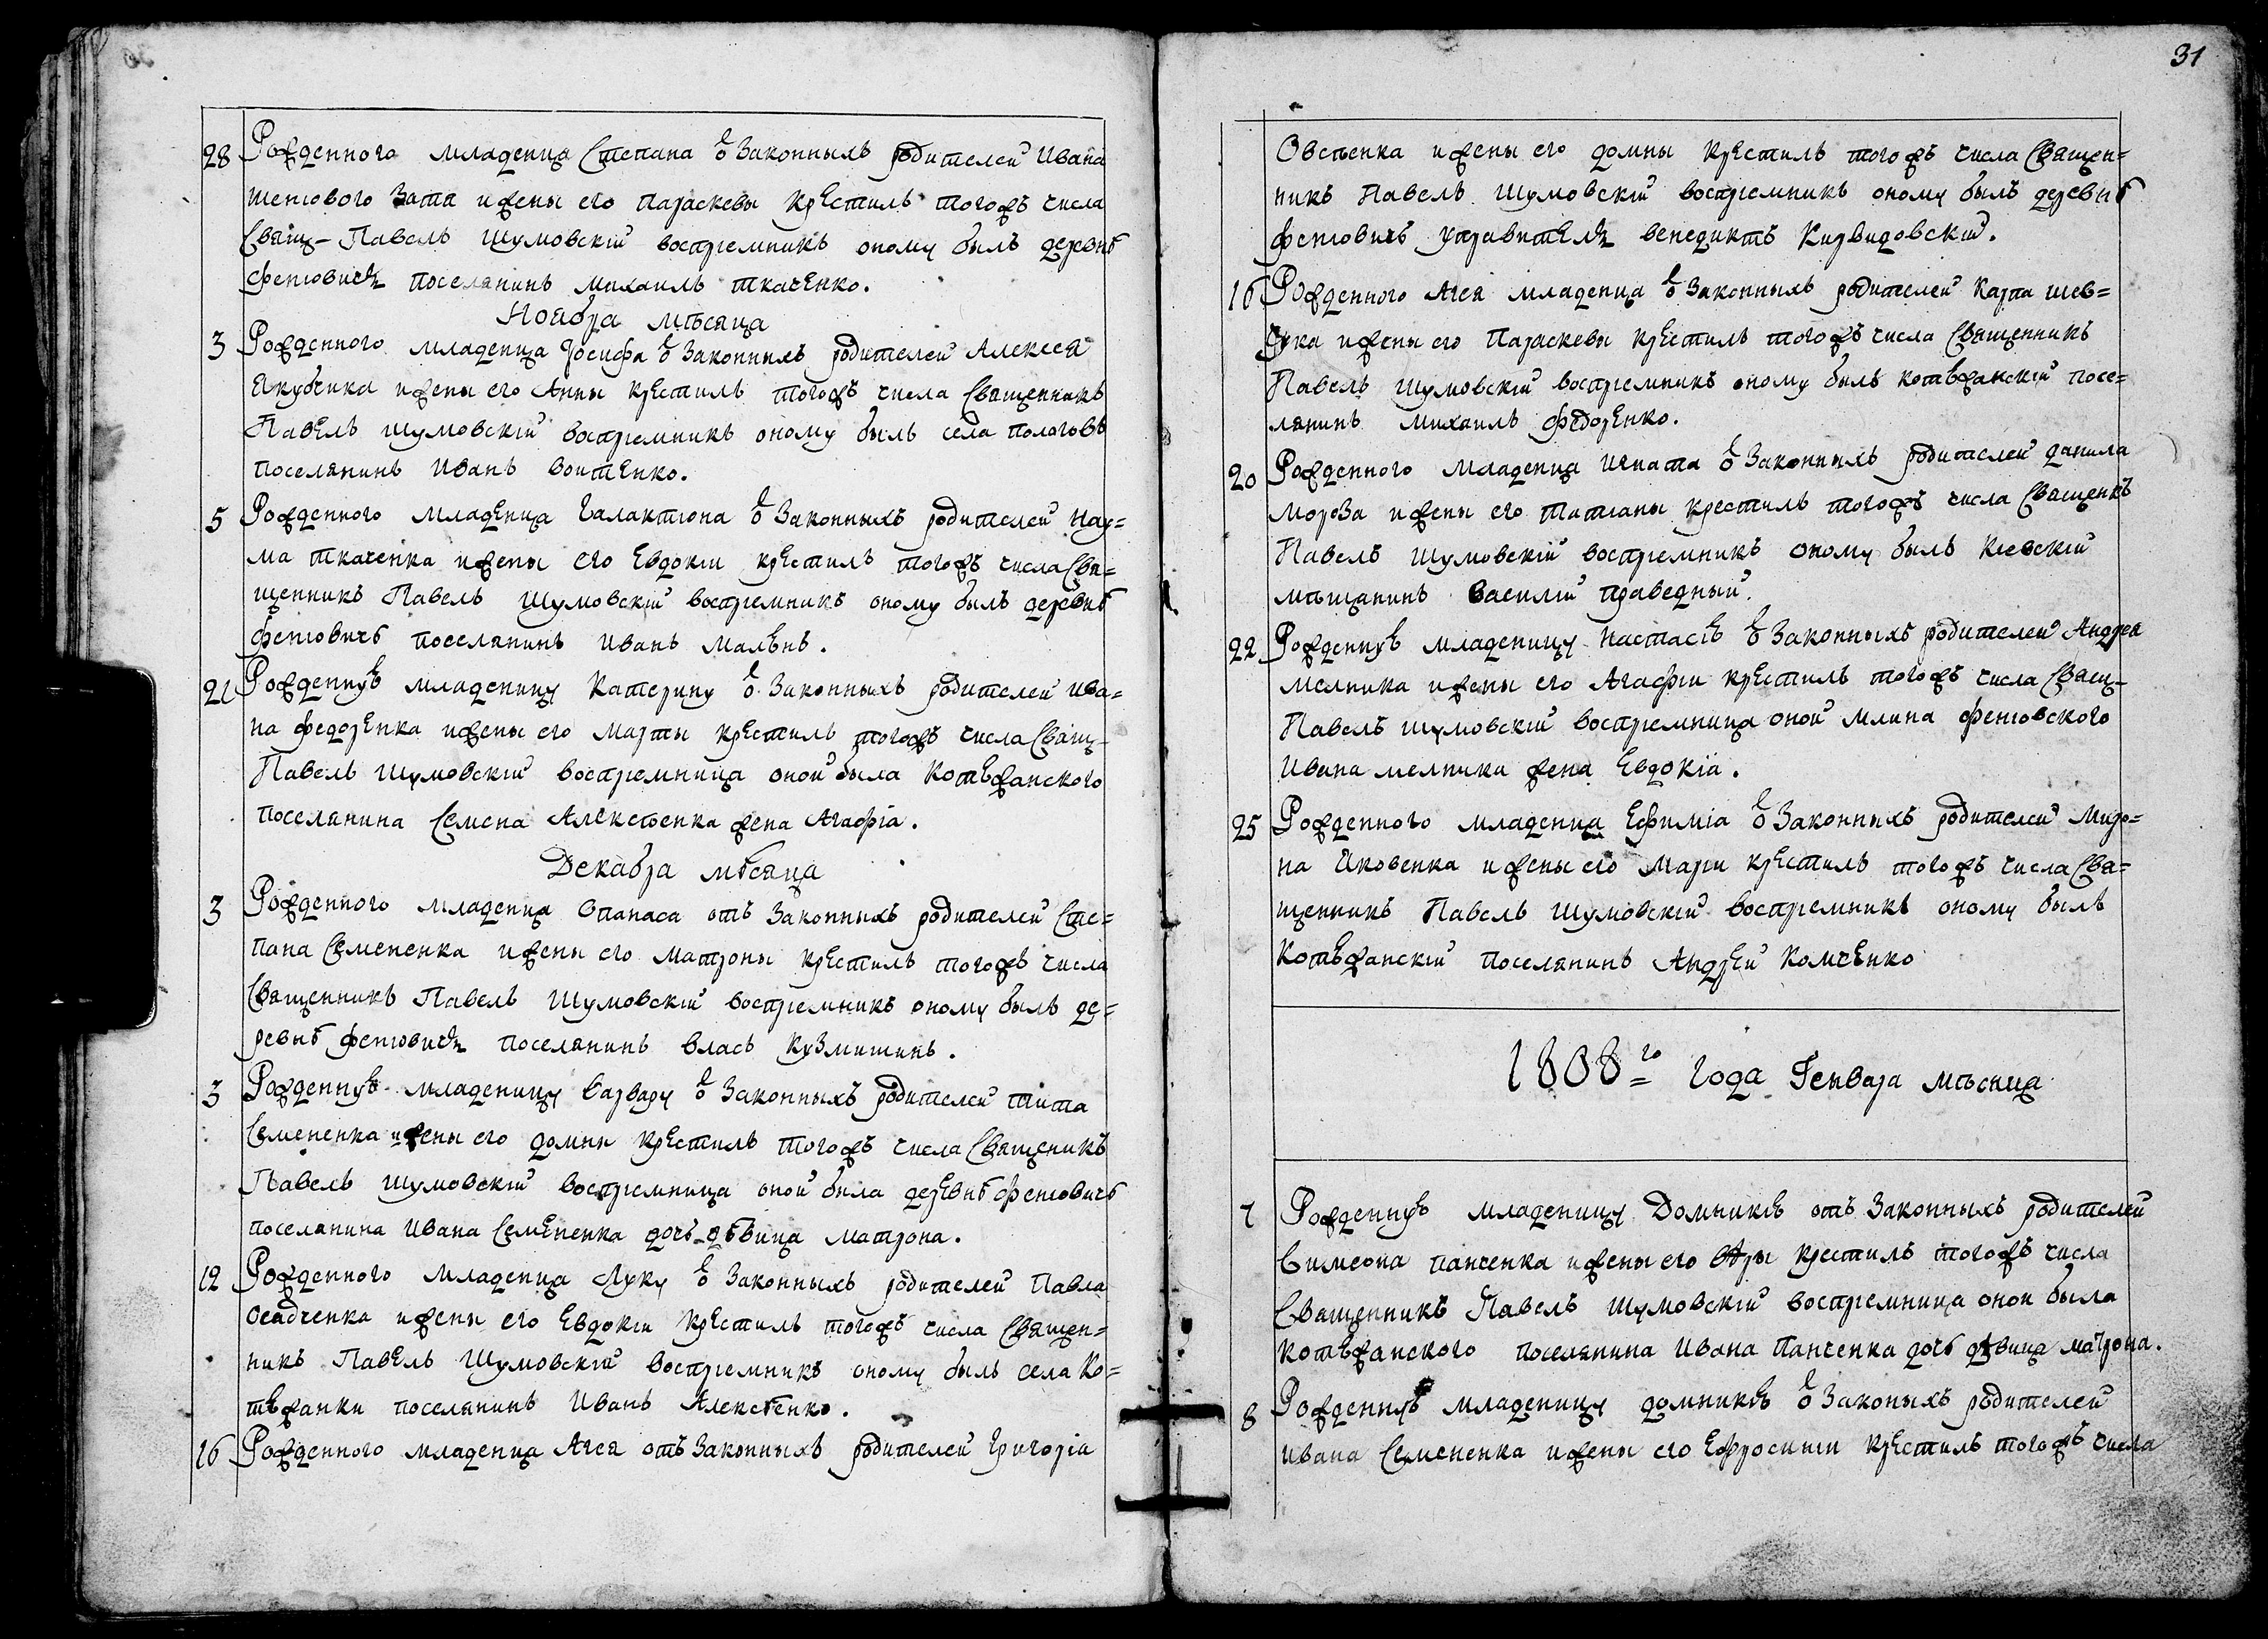 28 Рожденного младенца Степана ѿ Законныхъ родителей Ивана
шепового Зятя и жены его Параскевы крестилъ того жъ числа
Свящ- Павелъ Шумовскій воспріемникъ оному былъ деревнѣ
феневичъ поселянинъ Михаилъ ткаченко.
Ноября мѣсяца
3 Рожденного младенца Іосифа ѿ Законныхъ родителей Алексея
Якубчика и жены его Анны крестилъ того жъ числа Священникъ
Павелъ шумовскій воспріемникъ оному былъ села пологовъ
поселянинъ Иванъ Воитенко.
5 Рожденного младенца Галактіона ѿ Законныхъ родителей Нау=
ма ткаченка и жены его Евдокіи крестилъ того жъ числа Свя=
щенникъ Павелъ Шумовскій воспріемникъ оному былъ деревнѣ
феневичъ поселянинъ Иванъ Маленъ.
21 Рожденную младеницу Катерину ѿ Законныхъ родителей Ива=
на федоренка и жены его Марты крестилъ того жъ числа Свящ-
Павелъ Шумовскій воспріемница оной была Котюжанского
поселянина Семена Алексѣенка жена Агафія.
Декабря мѣсяца
3 Рожденного младенца Опанаса отъ Законныхъ родителей Сте=
пана Семененка и жены его Матроны крестилъ того жъ числа
Священникъ Павелъ Шумовскій воспріемникъ оному былъ де=
ревнѣ феневичъ поселянинъ Власъ Кузмишинъ.
3 Рожденную младеницу Варвару ѿ Законныхъ родителей тита
Семененка и жены его домны крестилъ того жъ числа Священикъ
Павелъ Шумовскій воспріемница оной была деревнѣ феневичъ
поселянина Ивана Семененка дочь девица матрона.
12 Рожденного младенца Луку ѿ Законныхъ родителей Павла
Осадченка и жены его Евдокіи крестилъ того жъ числа Священ=
никъ Павелъ Шумовскій воспріемникъ оному былъ села Ко=
тюжанки поселянинъ Иванъ Алексѣенко.
16 Рожденного младенца Агея отъ Законныхъ родителей Григорія
31
Овсѣенка и жены его домны крестилъ того жъ числа Священ=
никъ Павелъ Шумовскій воспріемникъ оному былъ деревнѣ
феневичъ управитель венедиктъ Кирвидовскій.
16 Рожденного Агея младенца ѿ Законныхъ родителей Карпа шев=
чука и жены его Параскевы крестилъ того жъ числа Священникъ
Павелъ Шумовскій воспріемникъ оному былъ котюжанскій посе=
лянинъ михаилъ федоренко.
20 Рожденного младенца Игната ѿ Законныхъ родителей данила
мороза и жены его Татіаны крестилъ того жъ числа Священкъ
Павелъ Шумовскій воспріемникъ оному былъ кіевскій
мѣщанинъ Василій праведный.
22 Рожденную младеницу Настасію ѿ Законныхъ родителей Андрея
мелника и жены его Агафіи крестилъ того жъ числа Свящ-
Павелъ Шумовскій воспріемница оной млина феневского
Ивана мелника жена Евдокіа.
25 Рожденного младенца Ефиміа ѿ Законныхъ родителей Миро=
на Яковенка и жены его Маріи крестилъ того жъ числа Свя=
щенникъ Павелъ Шумовскій воспріемникъ оному былъ
Котюжанскій поселянинъ Андрей Комченко
1808го Года Генваря мѣсяца
7 Рожденную младеницу Домникію отъ Законныхъ родителей
Симеона панченка и жены его крестилъ того жъ числа
Священникъ Павелъ Шумовскій воспріемница оной была
котюжанского поселянина Ивана Панченка дочь девица матрона.
8 Рожденную младеницу домникію ѿ Законыхъ родителей
Ивана Семененка и жены его Ефросиніи крестилъ того жъ числа